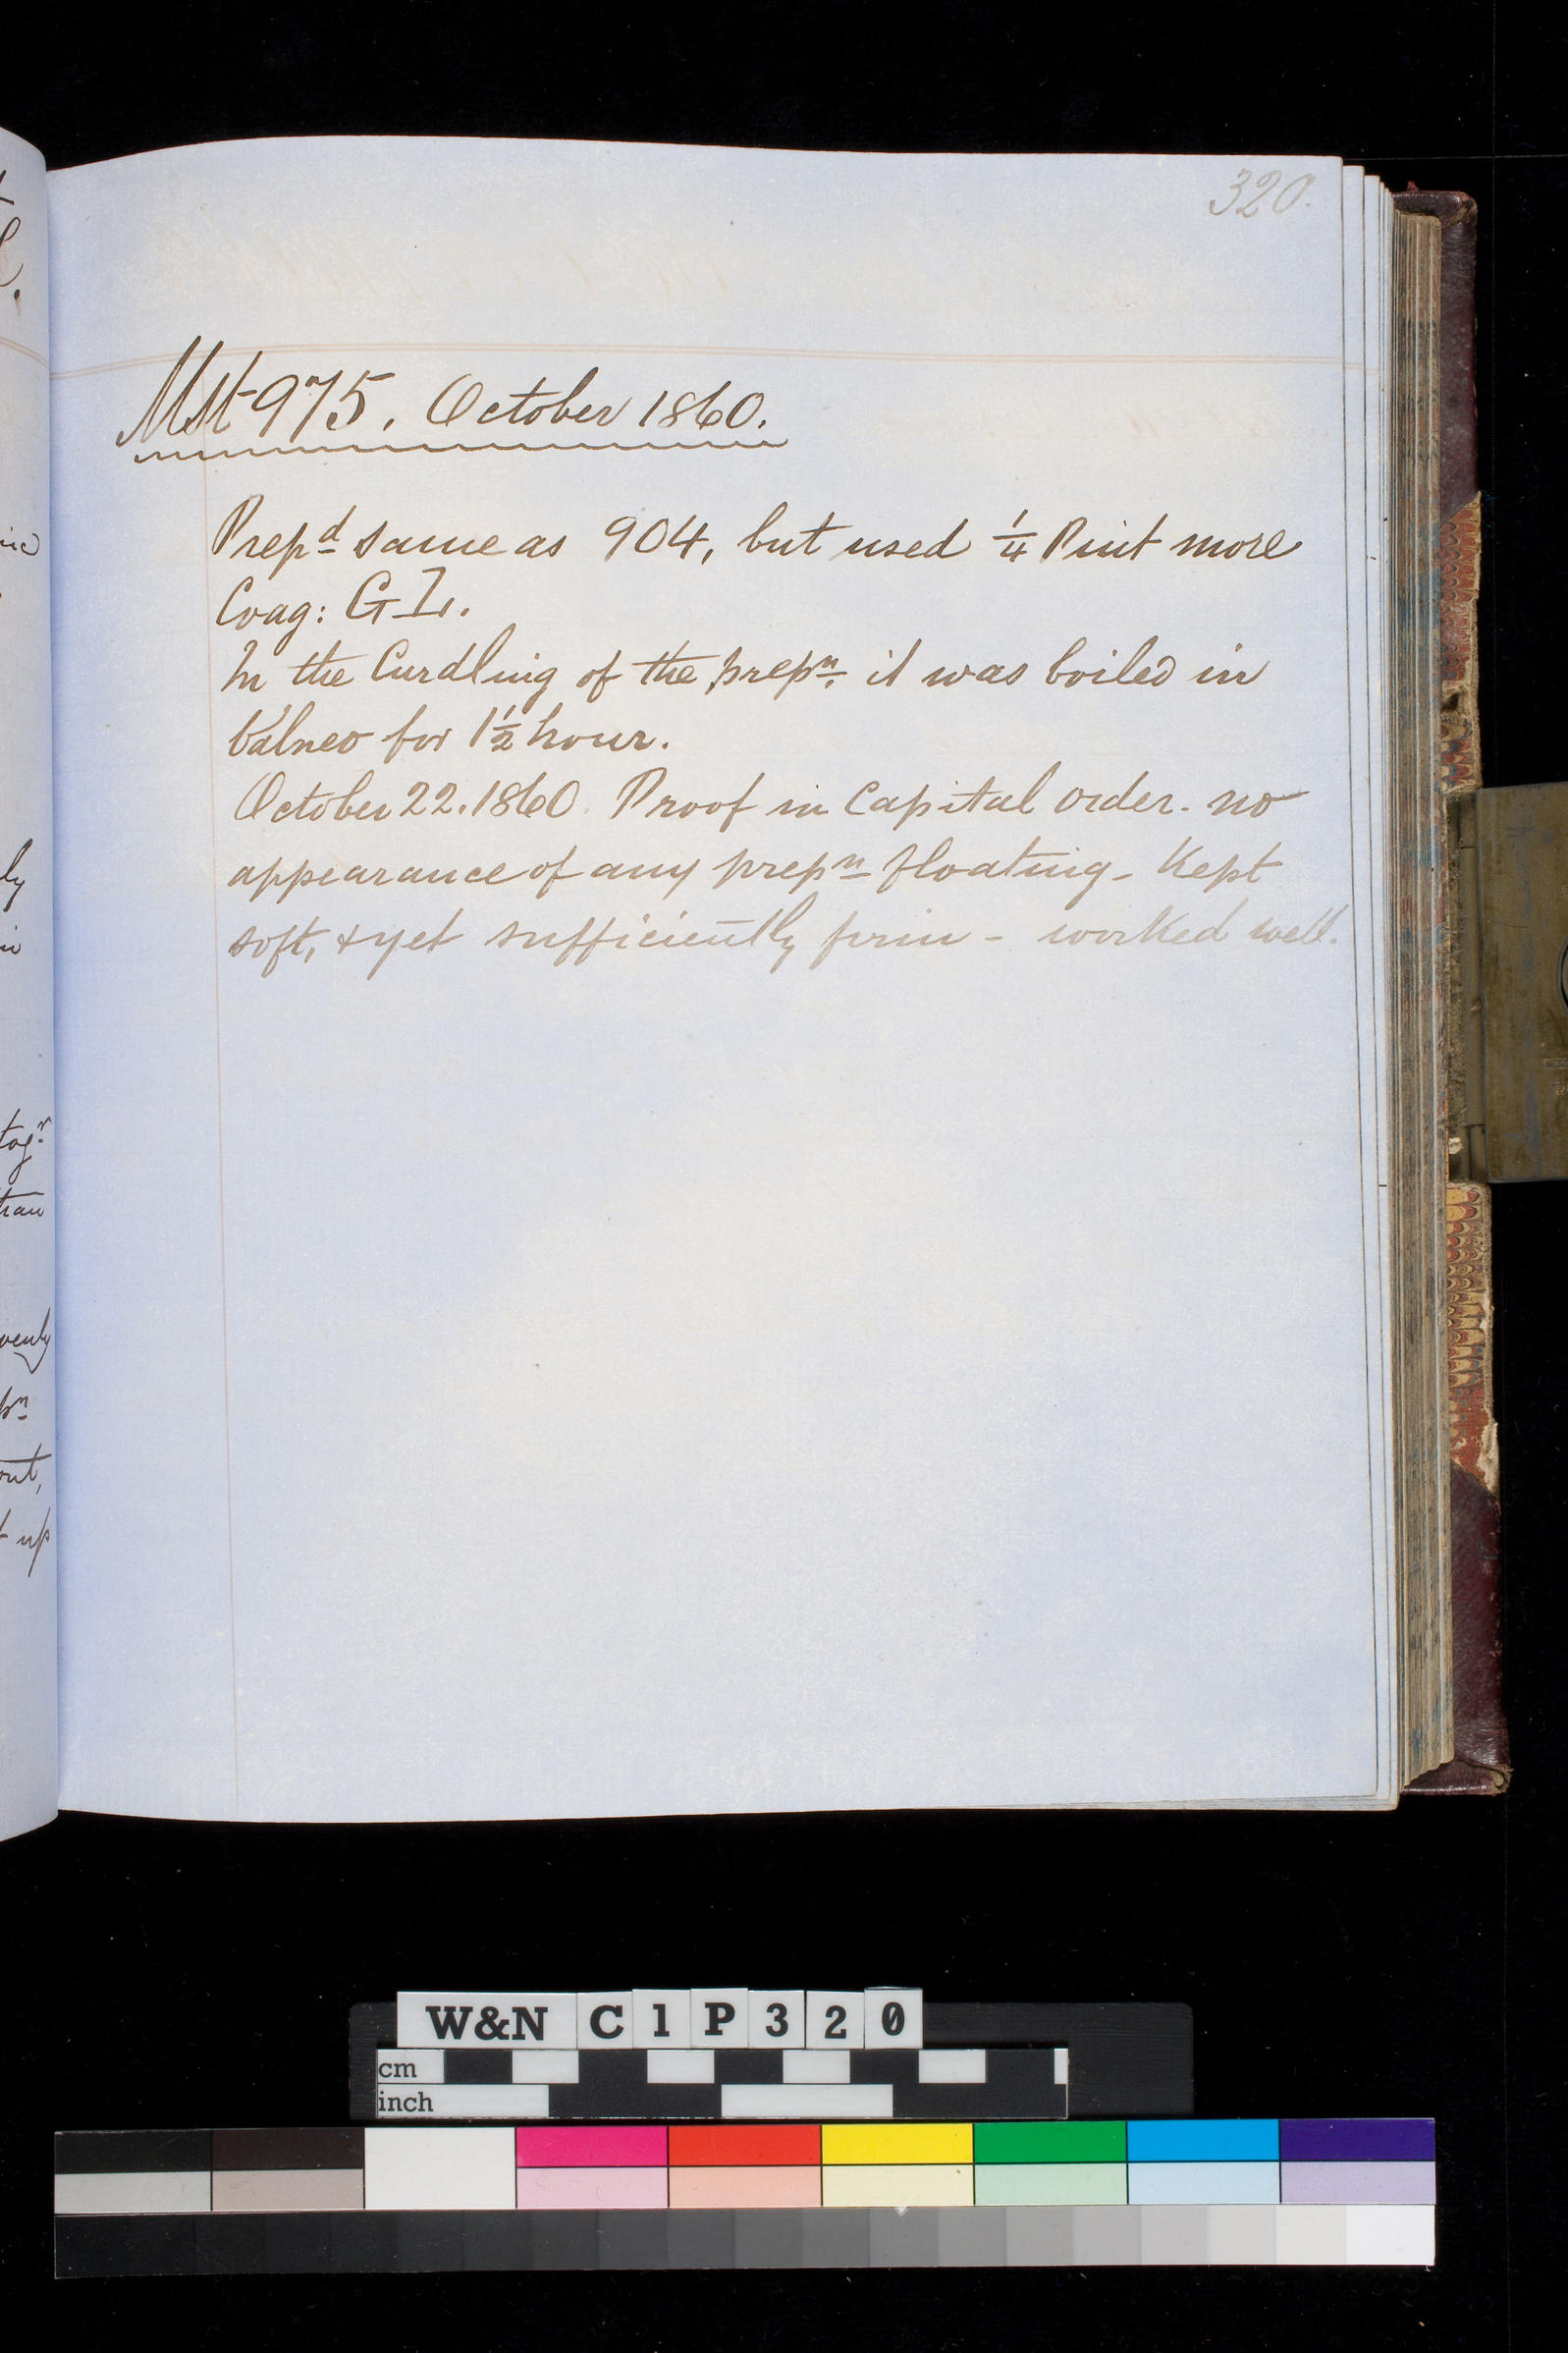 320.
Mst 975. October 1860.
Prepd same as 904, but used 1/4 Pint more
Coag: G L.
In the Curdling of the prepn. it was boiled in
balneo for 1 1/2 hour.
October 22. 1860. Proof in Capital order. no
appearance of any prepn floating - Kept
soft, & yet sufficiently firm - worked well.
ly
togr
than
out,
up
W&N C1P320
cm
inch